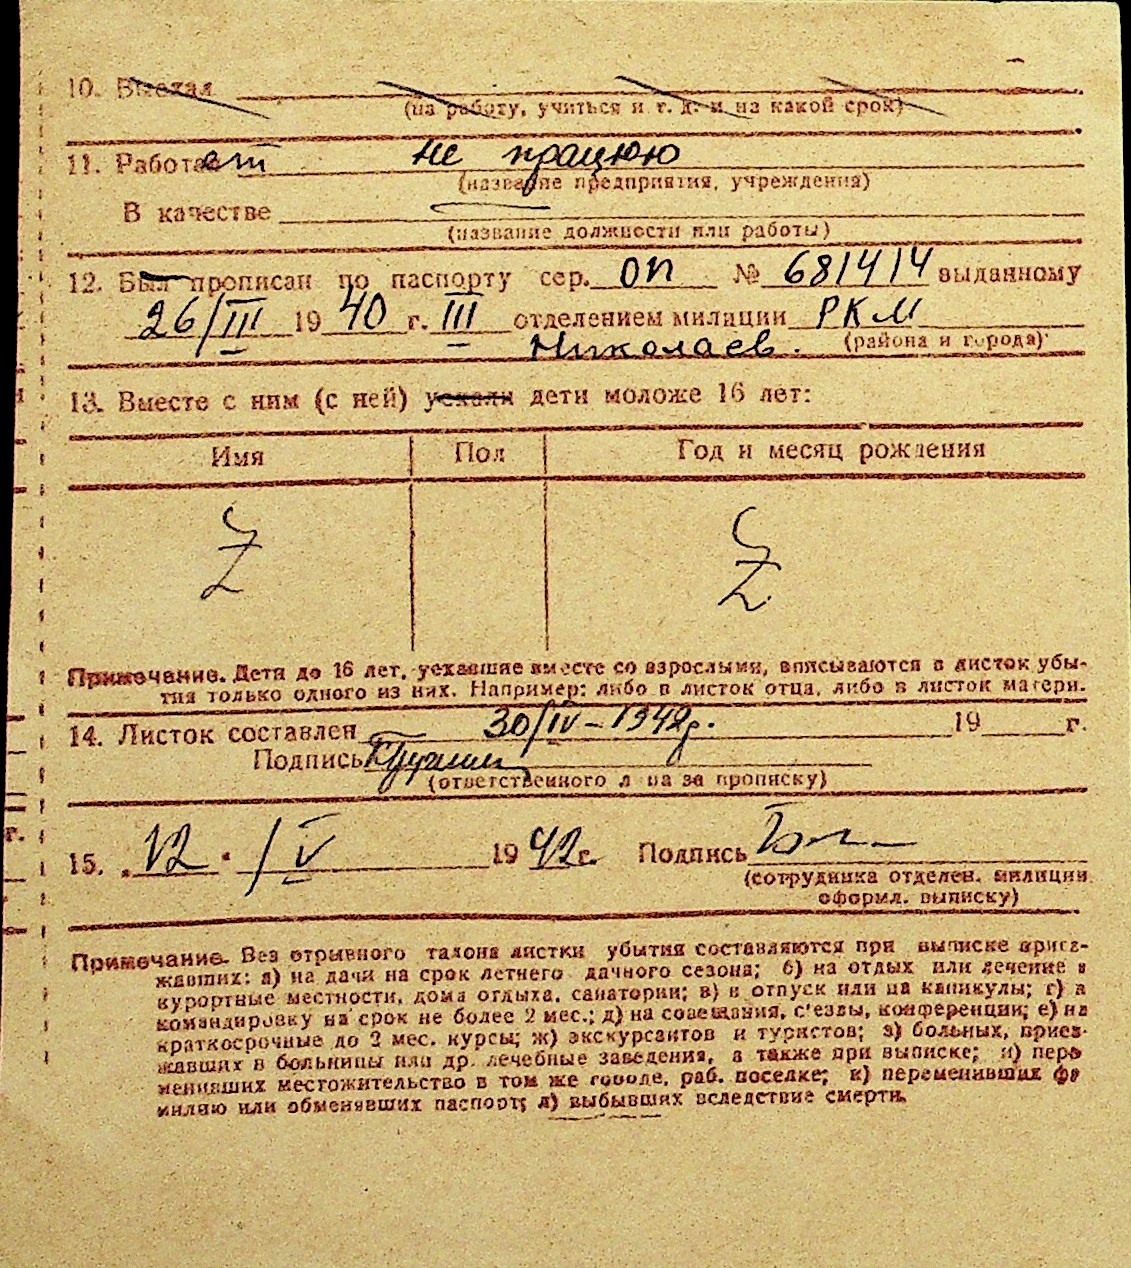 10. Выехал
(на работу, учиться и т. д. и на какой срок)
11. Работает не працюю
(название предприятия, учреждения)
В качестве
(название должности или работы)
12. Был прописан по паспорту сер. ОП № 681414 выданному
26/III 1940 г. III отделением милиции РКМ
Николаев. (района и города)
13. Вместе с ним (с ней) уехали дети моложе 16 лет:
Имя Пол Год и месяц рождения
Z Z
Примечание. Дети до 16 лет, уехавшие вместе со взрослыми, вписываются в листок убы-
тия только одного из них. Например: либо в листок отца, либо в листок матери.
14. Листок составлен 30/IV-1942г. 19 г.
Подпись
(ответственного л ца за прописку)
15. 12 /V 1942г. Подпись
(сотрудника отделен. милиции
оформл. выписку)
Примечание. Без отрывного талона листки убытия составляются при выписке приез-
жавших: а) на дачи на срок летнего дачного сезона; б) на отдых или лечение в
курортные местности, дома отдыха, санатории; в) в отпуск или на каникулы; г) в
командировку на срок не более 2 мес.; д) на совещания, с'езды, конференции; е) на
краткосрочные до 2 мес. курсы; ж) экскурсантов и туристов; з) больных, приез-
жавших в больницы или др. лечебные заведения, а также при выписке; и) пере
менивших местожительство в том же городе, раб. поселке; к) переменивших фа
милию или обменявших паспорт; л) выбывших вследствие смерти.